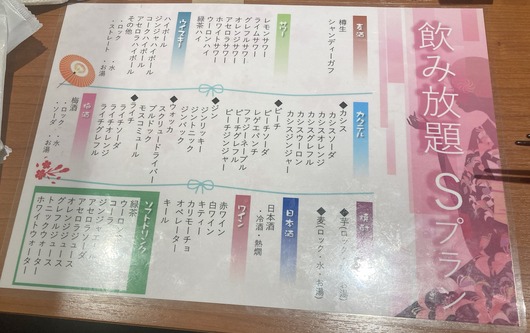 飲み放題 Sプラン
麦酒
樽生
シャンディーガフ
サワー
レモンサワー
ライムサワー
グレフルサワー
アセロラサワー
ホワイトサワー
ウーロンハイ
緑茶ハイ
ウイスキー
ハイボール
ジンジャハイボール
コークハイボール
アセロラハイボール
その他
・ロック ・水
・ストレート ・お湯
カクテル
◆カシス
カシスソーダ
カシスオレンジ
カシスグレフル
カシスウーロン
カシスジンジャー
◆ピーチ
ピーチソーダ
レゲエパンチ
ファジーネーブル
ピーチグレフル
ピーチジンジャー
◆ジン
ジンリッキー
ジントニック
ジンバック
◆ウォッカ
スクリュードライバー
ブルドック
モスコミュール
◆ライチ
ライチソーダ
ライチオレンジ
ライチグレフル
梅酒
梅酒
・ロック ・水
・ソーダ ・お湯
焼酎
◆芋(ロック・水・お湯)
◆麦(ロック・水・お湯)
日本酒
日本酒
・冷酒・熱燗
ワイン
赤ワイン
白ワイン
キティ
カリモーチョ
オペレーター
キール
ソフトドリンク
緑茶
ウーロン
コーラ
ジンジャ
アセロラソーダ
アセロラジュース
オレンジジュース
グレフルジュース
トニックウォーター
ホワイトウォーター